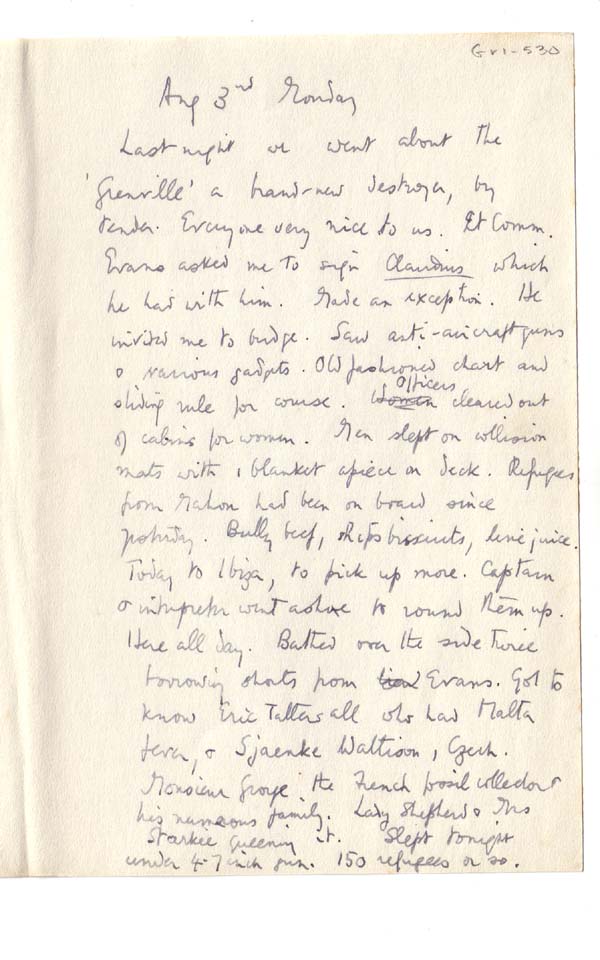 Gr1-530
Aug 3rd Monday
Last night we went about the
'Grenville' a brand-new destroyer, by
tender. Everyone very nice to us. Lt Comm.
Evans asked me to sign Claudius which
he had with him. Made an exception. He
invited me to bridge. Saw anti-aircraft guns
& various gadgets. Old fashioned chart and
sliding rule for course. Women Officers cleared out
of cabins for women. Men slept on collision
mats with 1 blanket apiece on deck. Refugees
from Mahon had been on board since
yesterday. Bully beef, ships biscuits, lime juice.
Today to Ibiza, to pick up more. Captain
& interpreter went ashore to round them up.
Here all day. Bathed over the side twice
borrowing shorts from Evans. Got to
know Eric Tattersall who had Malta
fever, & Sjaenke Wattison, Czech.
Monsieur George the French fossil collector &
his numerous family. Lady Shepherd & Mrs
Starkie queening it. Slept tonight
under 4.7 inch gun. 150 refugees or so.